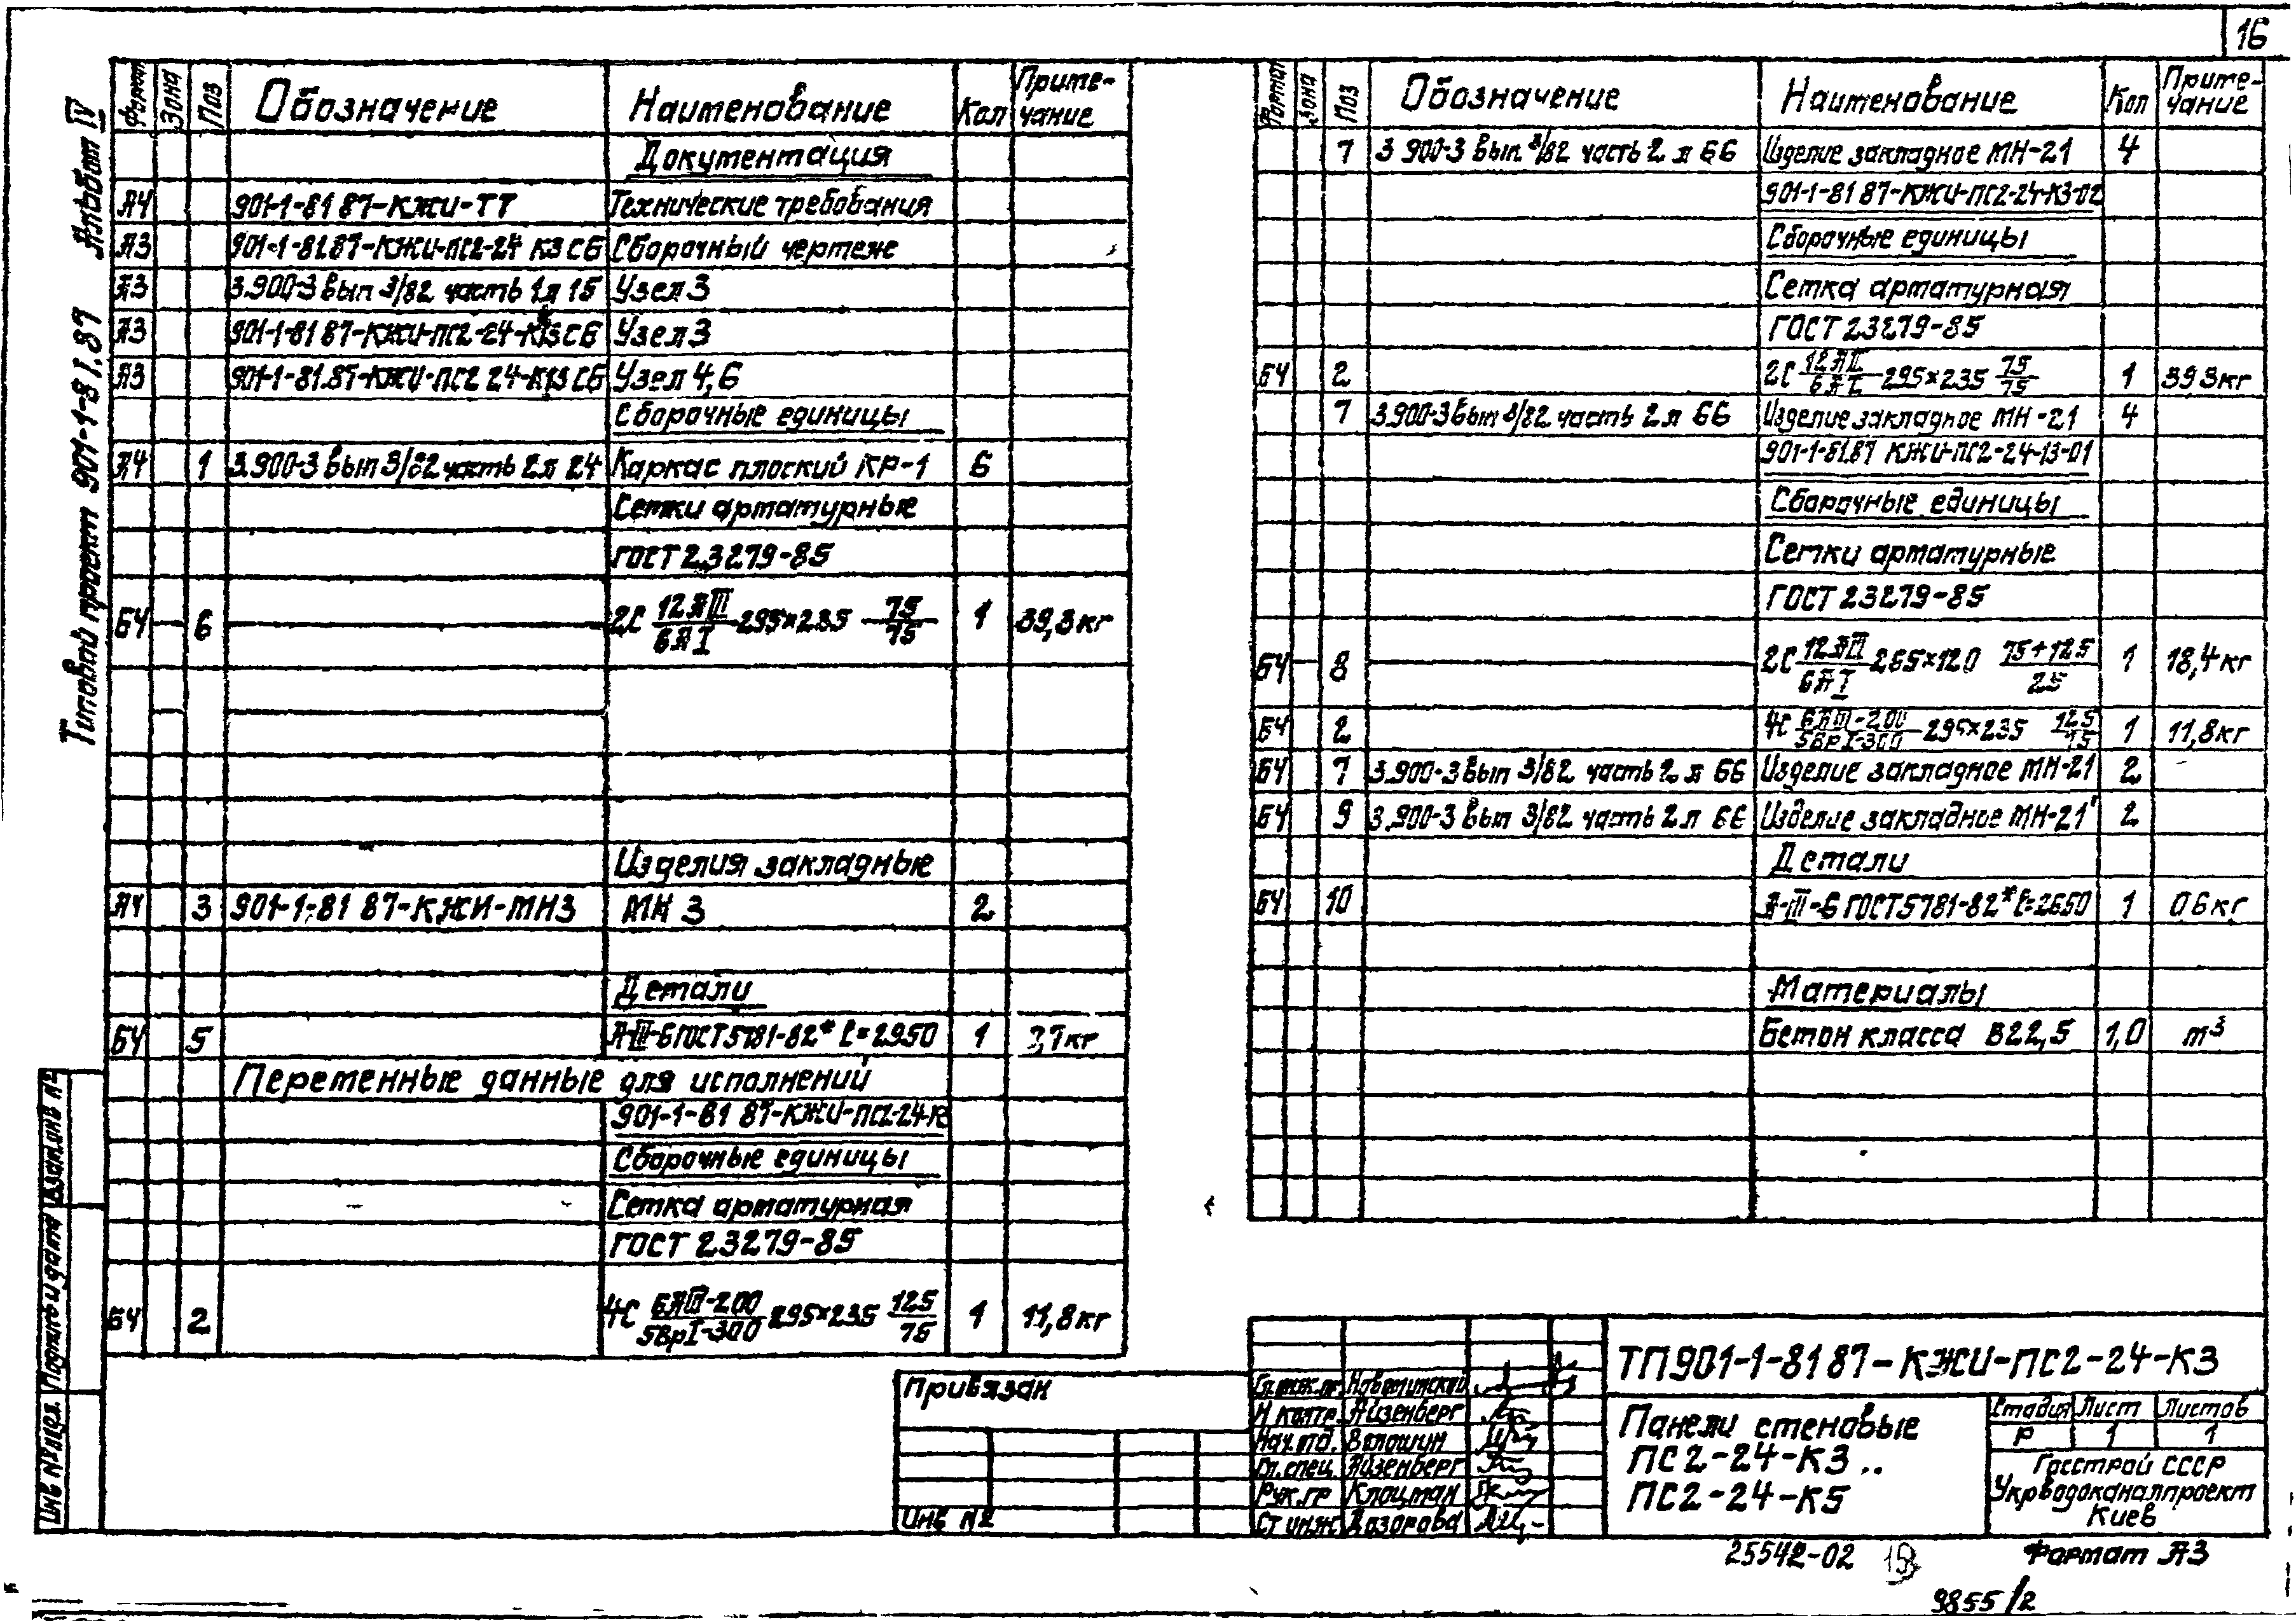 16
Альбом IV
Типовой проект 901-1-81.87
Формат Зона Поз Обозначение Наименование Кол Приме-чание
Документация
А4 901-1-81 87-КЖИ-ТТ Технические требования
А3 901-1-81.87-КЖИ-ПС2-24 К3 СБ Сборочный чертеж
А3 3.900-3 вып 3/82 часть 1 л 15 Узел 3
А3 901-1-81 87-КЖИ-ПС2-24-К13 СБ Узел 3
А3 901-1-81.87-КЖИ-ПС2 24-К13 СБ Узел 4,6
Сборочные единицы
А4 1 3.900-3 вып 3/82 часть 2 л 24 Каркас плоский КР-1 6
Сетки арматурные
ГОСТ 23279-85
БЧ 6 2С 12АIII/6АI 295×235 75/75 1 39,3кг
Изделия закладные
А4 3 901-1-81 87-КЖИ-МН3 МН 3 2
Детали
БЧ 5 А-III-6 ГОСТ 5781-82* ℓ=2950 1 ,7кг
Переменные данные для исполнений
901-1-81 87-КЖИ-ПС2-24-К
Сборочные единицы
Сетка арматурная
ГОСТ 23279-85
БЧ 2 4С 6АIII-200/5ВрI-300 295×235 125/75 1 11,8кг
Формат Зона Поз Обозначение Наименование Кол Приме-чание
7 3 900-3 вып 3/82 часть 2 л 66 Изделие закладное МН-21 4
901-1-81 87-КЖИ-ПС2-24-К3-02
Сборочные единицы
Сетка арматурная
ГОСТ 23279-85
БЧ 2 2С 12АIII/6АI 295×235 75/75 1 39 3кг
7 3.900-3 вып 3/82 часть 2 л 66 Изделие закладное МН-21 4
901-1-81.87 КЖИ-ПС2-24-13-01
Сборочные единицы
Сетки арматурные
ГОСТ 23279-85
БЧ 8 2С 12АIII/6АI 265×120 75+125/25 1 18,4кг
БЧ 2 4С 6АIII-200/5ВрI-300 295×235 125/75 1 11,8кг
БЧ 7 3.900-3 вып 3/82 часть 2 л 66 Изделие закладное МН-21 2
БЧ 9 3.900-3 вып 3/82 часть 2 л 66 Изделие закладное МН-21' 2
Детали
БЧ 10 А-III-6 ГОСТ 5781-82* ℓ=2650 1 0 6кг
Материалы
Бетон класса В22,5 1,0 m³
Взам.инв №
Подпись и дата
Инв № подл.
Привязан
Инв №
Гл.инж.пр.
Н контр. Айзенберг
Нач.отд. Волошин
Гл.спец. Айзенберг
Рук.гр Клоцман
Ст инж Дозорова
ТП 901-1-81 87-КЖИ-ПС2-24-К3
Панели стеновые
ПС2-24-К3 ..
ПС2-24-К5
Стадия Лист Листов
Р 1 1
Госстрой СССР
Укрводоканалпроект
Киев
25542-02 19
Формат А3
9855/2